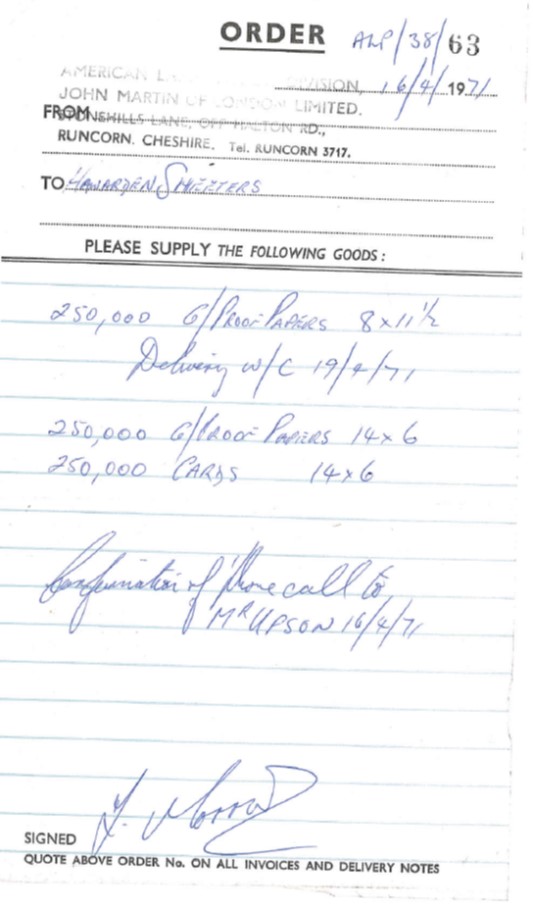 ORDER ALP/38/63
AMERICAN DIVISION, 16/4/1971
JOHN MARTIN OF LONDON LIMITED.
FROM STONEHILLS LANE, OFF HALTON RD.,
RUNCORN. CHESHIRE. Tel. RUNCORN 3717.
TO HAWARDEN SHEETERS
PLEASE SUPPLY THE FOLLOWING GOODS:
250,000 G/PROOF PAPERS 8x11½
Delivery w/c 19/4/71
250,000 G/PROOF PAPERS 14x6
250,000 CARDS 14x6
Confirmation of Phone call to
MR UPSON 16/4/71
SIGNED
QUOTE ABOVE ORDER No. ON ALL INVOICES AND DELIVERY NOTES